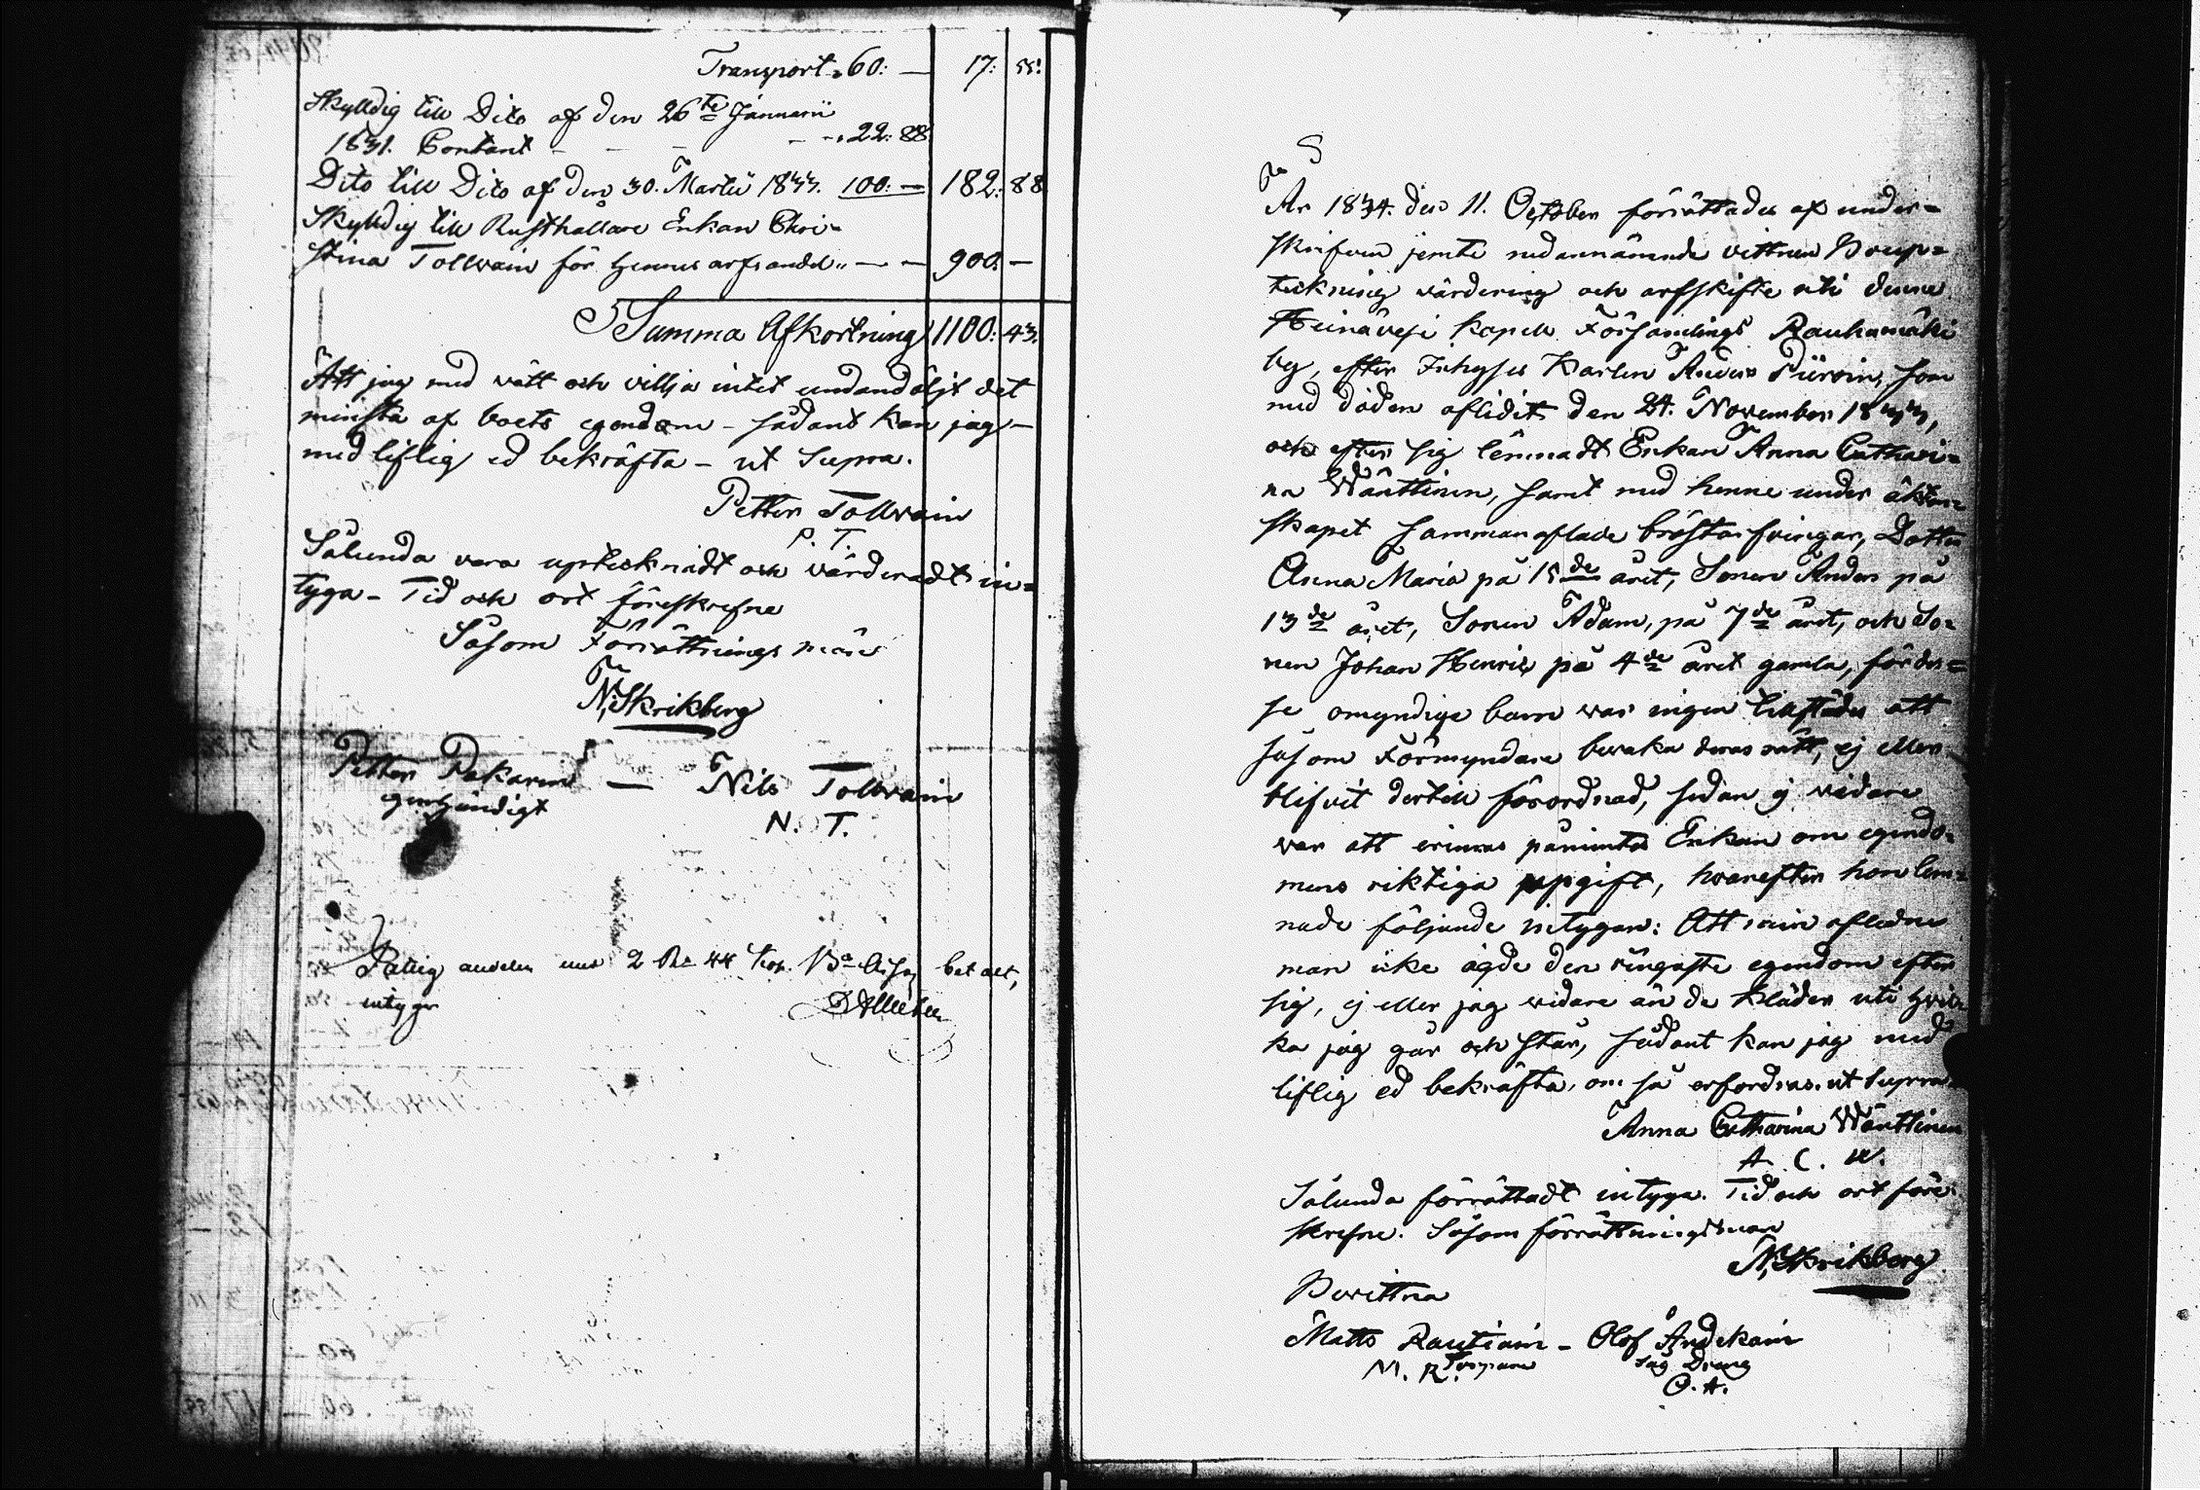 Transport „ 60: — 17: 55.
Skylldig till Dito af den 26te Januarii
1831. Contant - - - - „ 22: 88
Dito till Dito af den 30. Martii 1833. 100: — 182: 88
Skylldig till Rusthållare Enkan Chri-
stina Tollwain för hennes arfsandel „ — — 900. —
Summa Afkortning 1100: 43.
Att jag med vett och villja intet undandöljt det
minsta af boets egendom - sådant kan jag -
med liflig ed bekräfta - ut Supra.
Petter Tollwain
P. T.
Sålunda vara uptecknadt och värderadt in-
tyga - Tid och ort föreskrefne
Såsom Förrättnings män
N. Skrikberg
Petter Pakarin — Nils Tollwain
egenhändigt
N. T.
Fattig andelen med 2 Ru 44 kop. Bco Assg betalt,
intygar
År 1834. den 11. October förrättades af under-
skrifven jemte nedannämnde vittnen Boup-
teckning värdering och arfskifte uti denne
Heinävesi Kapell Församlings Rauhamäki
by, efter Inhyses Karlen Anders Pürain, som
med döden aflidit den 24. November 1833,
och efter sig lemnadt Enkan Anna Cathari-
na Wänttinen, samt med henne under äkten-
skapet sammanaflade bröstarfvingar, Dotter
Anna Maria på 15de året, Sonen Anders på
13de året, Sonen Adam, på 7de året, och So-
nen Johan Henric på 4de året gamla, för des-
se omyndige barn var ingen tillstädes att
såsom Förmyndare bevaka deras rätt, ej eller
blifvit dertill förordnad, sedan ej vidare
var att erinras påmintes Enkan om egendo-
mens riktiga uppgift, hvarefter hon lem-
nade följande intygan: Att min aflidne
man icke ägde den ringaste egendom efter
sig, ej eller jag vidare än de kläder uti hvil-
ka jag går och står, sådant kan jag med
liflig ed bekräfta, om så erfordras. ut Supra.
Anna Catharina Wänttinen
A. C. W.
Sålunda förrättadt intyga. Tid och ort före-
skrefne. Såsom förrättningsman
N. Skrikberg
Bevittna
Matts Rautiain - Olof Andekain
M. R. Torpare
Dräng
O. A.